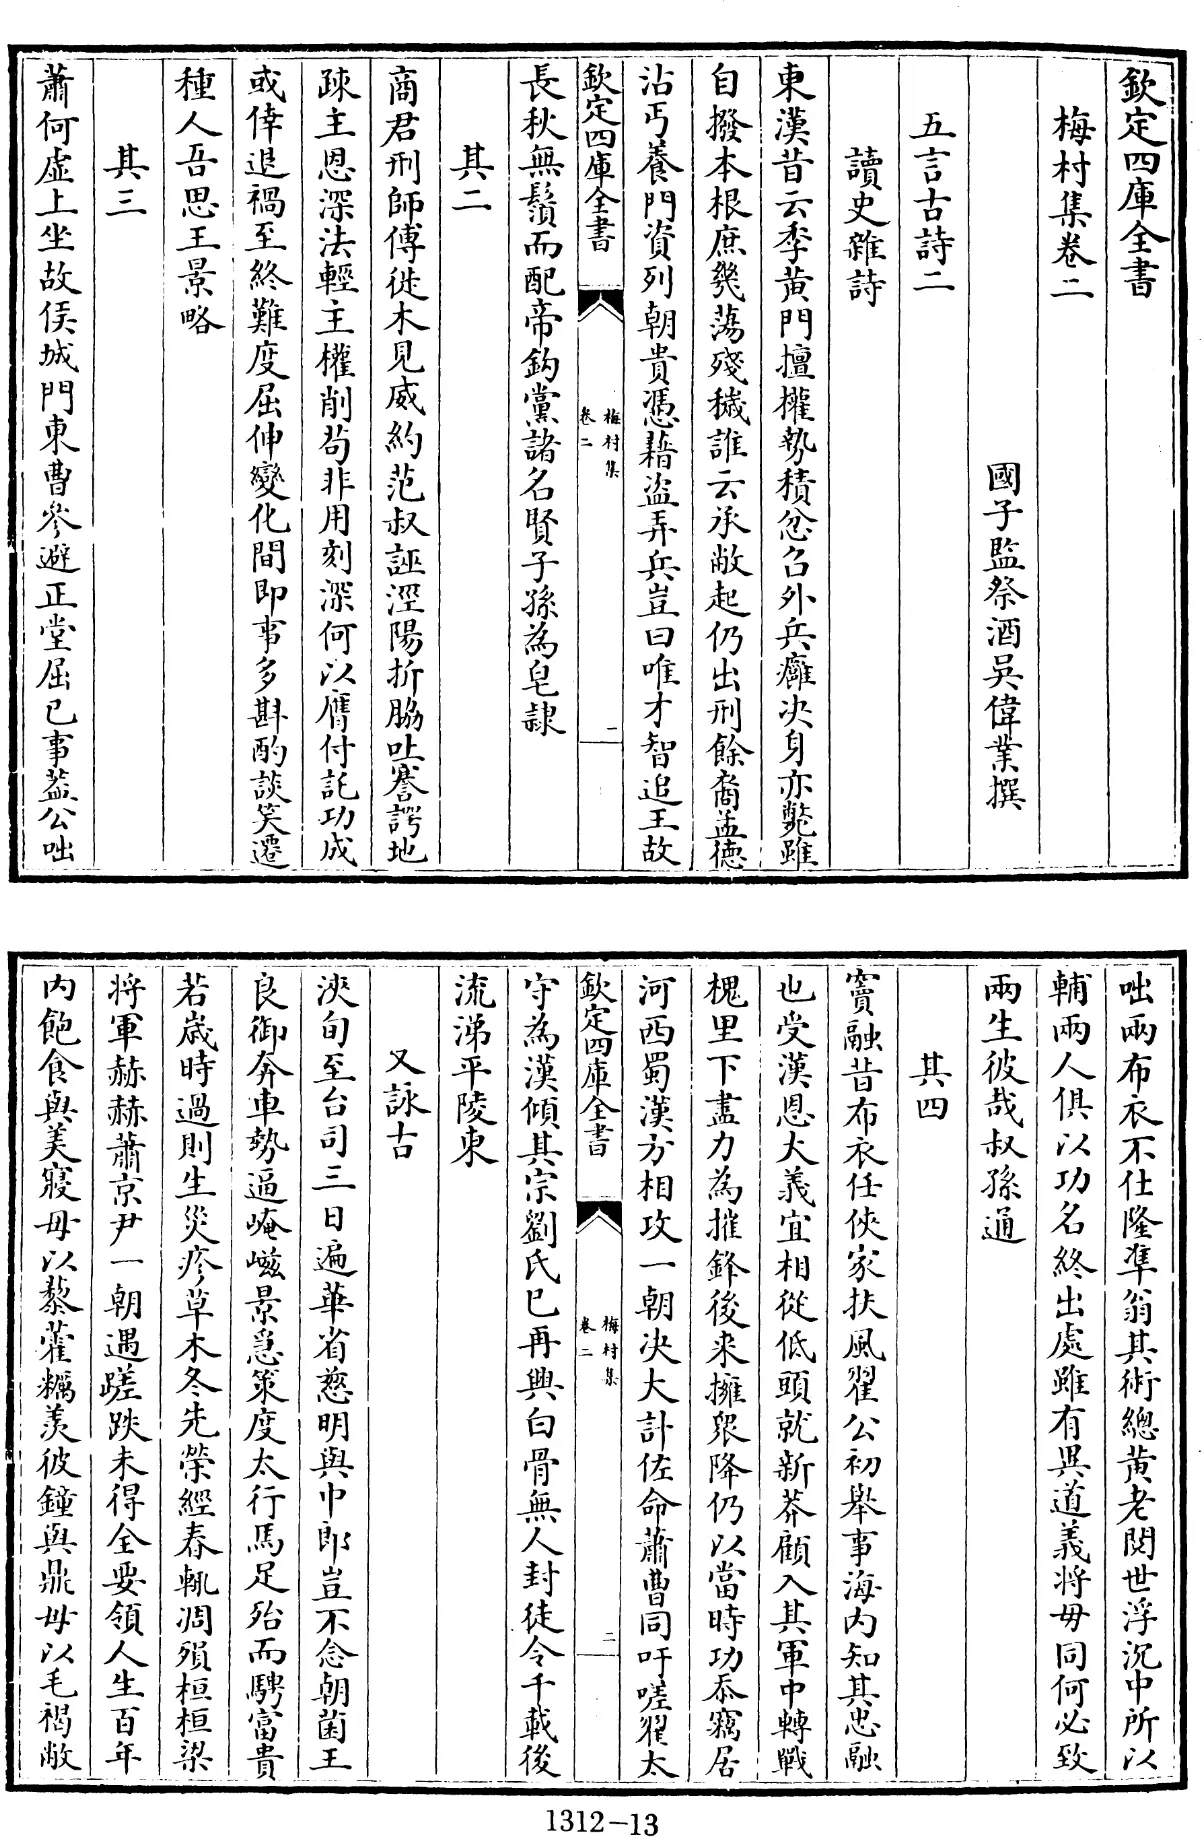 欽定四庫全書
梅村集卷二
國子監祭酒吳偉業撰
五言古詩二
讀史雜詩
東漢昔云季黃門擅權勢積忿召外兵癰決身亦斃雖
自撥本根庶幾蕩殘穢誰云承敝起仍出刑餘裔孟德
沾丐養門資列朝貴憑藉盜弄兵豈曰唯才智追王故
欽定四庫全書
梅村集
卷二
一
長秋無鬚而配帝鈎黨諸名賢子孫為皂隸
其二
商君刑師傅徙木見威約范叔誣涇陽折脇吐謇諤地
疎主恩深法輕主權削苟非用刻深何以膺付託功成
或倖退禍至終難度屈伸變化間即事多斟酌談笑遷
種人吾思王景略
其三
蕭何虛上坐故侯城門東曹參避正堂屈已事葢公咄
咄兩布衣不仕隆準翁其術總黃老閱世浮沉中所以
輔兩人俱以功名終出處雖有異道義將毋同何必致
兩生彼哉叔孫通
其四
竇融昔布衣任俠家扶風翟公初舉事海內知其忠融
也受漢恩大義宜相從低頭就新莽顧入其軍中轉戰
槐里下盡力為摧鋒後來擁衆降仍以當時功忝竊居
河西蜀漢方相攻一朝決大計佐命蕭曹同吁嗟翟太
欽定四庫全書
梅村集
卷二
二
守為漢傾其宗劉氏已再興白骨無人封徒令千載後
流涕平陵東
又詠古
浹旬至台司三日遍華省慈明與中郎豈不念朝菌王
良御奔車勢逼崦嵫景急策度太行馬足殆而騁富貴
若歲時過則生災疹草木冬先榮經春輒凋殞桓桓梁
將軍赫赫蕭京尹一朝遇蹉跌未得全要領人生百年
內飽食與美寢毋以藜藿糲羨彼鐘與鼎毋以毛褐敝
1312-13